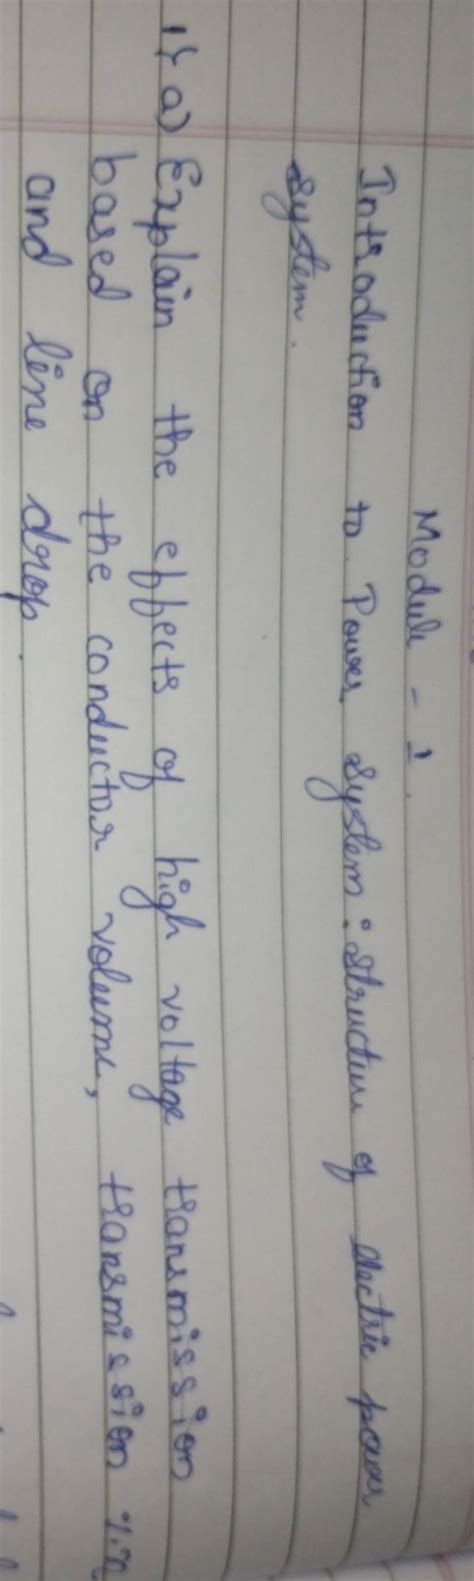 Module - 1.
Introduction to Power system: structure of electric power
system.
1} a) Explain the effects of high voltage transmission
based on the conductor volume, transmission %η
and line drop.